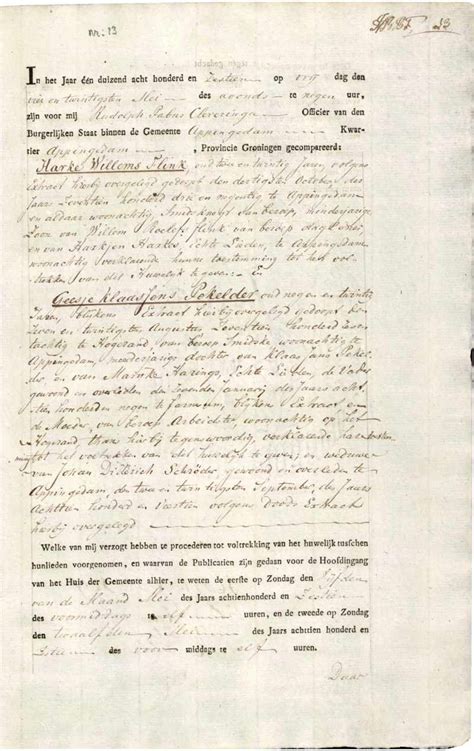 nr. 13
In het Jaar één duizend acht honderd en Zestien op vrij dag den
vier en twintigsten Mei des avonds te negen uur,
zijn voor mij Rudolph Pabus Cleveringa Officier van den
Burgerlijken Staat binnen de Gemeente Appingedam Kwar-
tier Appingedam, Provincie Groningen gecompareerd:
Harke Willems Flink, oud twee en twintig Jaren, volgens
Extract hierbij overgelegd gedoopt den dertigsten October des
Jaars Zeventien honderd drie en negentig te Appingedam
en aldaar woonachtig, Smidsknegt van beroep, minderjarige
Zoon van Willem Roelefs Flink van beroep
en van Harkjen Harkes, Echte Lieden, te Appingedam
woonachtig verklarende hunne toestemming tot het vol-
trekken van dit Huwelijk te geven: En
Geesje Klaassens Pekelder oud negen en twintig
Jaren, Extract hierbij overgelegd gedoopt den
Zeven en twintigsten Augustus Zeventien honderd Zes en
tachtig te Hogezand, van beroep woonachtig te
Appingedam, meerderjarige dochter van Klaas Jans Pekel-
der en van Marike Harings, Echte Lieden, de Vader
gewoond en overleden den Januarij des Jaars acht-
tien honderd en negen te Farmsum, blijkens Extract en
de Moeder, van beroep Arbeidster woonachtig op het
thans hierbij tegenwoordig, verklarende
het voltrekken van dit huwelijk te geven; en weduwe
van Johan Diderich Schröder gewoond en overleden te
Appingedam, den twee en twintigsten September, des Jaars
Achttien honderd en Veertien volgens doods Extract
hierbij overgelegd
Welke van mij verzogt hebben te procederen tot voltrekking van het huwelijk tusschen
hunlieden voorgenomen, en waarvan de Publicatien zijn gedaan voor de Hoofdingang
van het Huis der Gemeente alhier, te weten de eerste op Zondag den Vijfden
van de Maand Mei des Jaars achtienhonderd en Zestien
des voormiddags te elf uuren, en de tweede op Zondag
den twaalfden Mei des Jaars achttien honderd en
Zestien des voor middags te elf uuren.
Daar